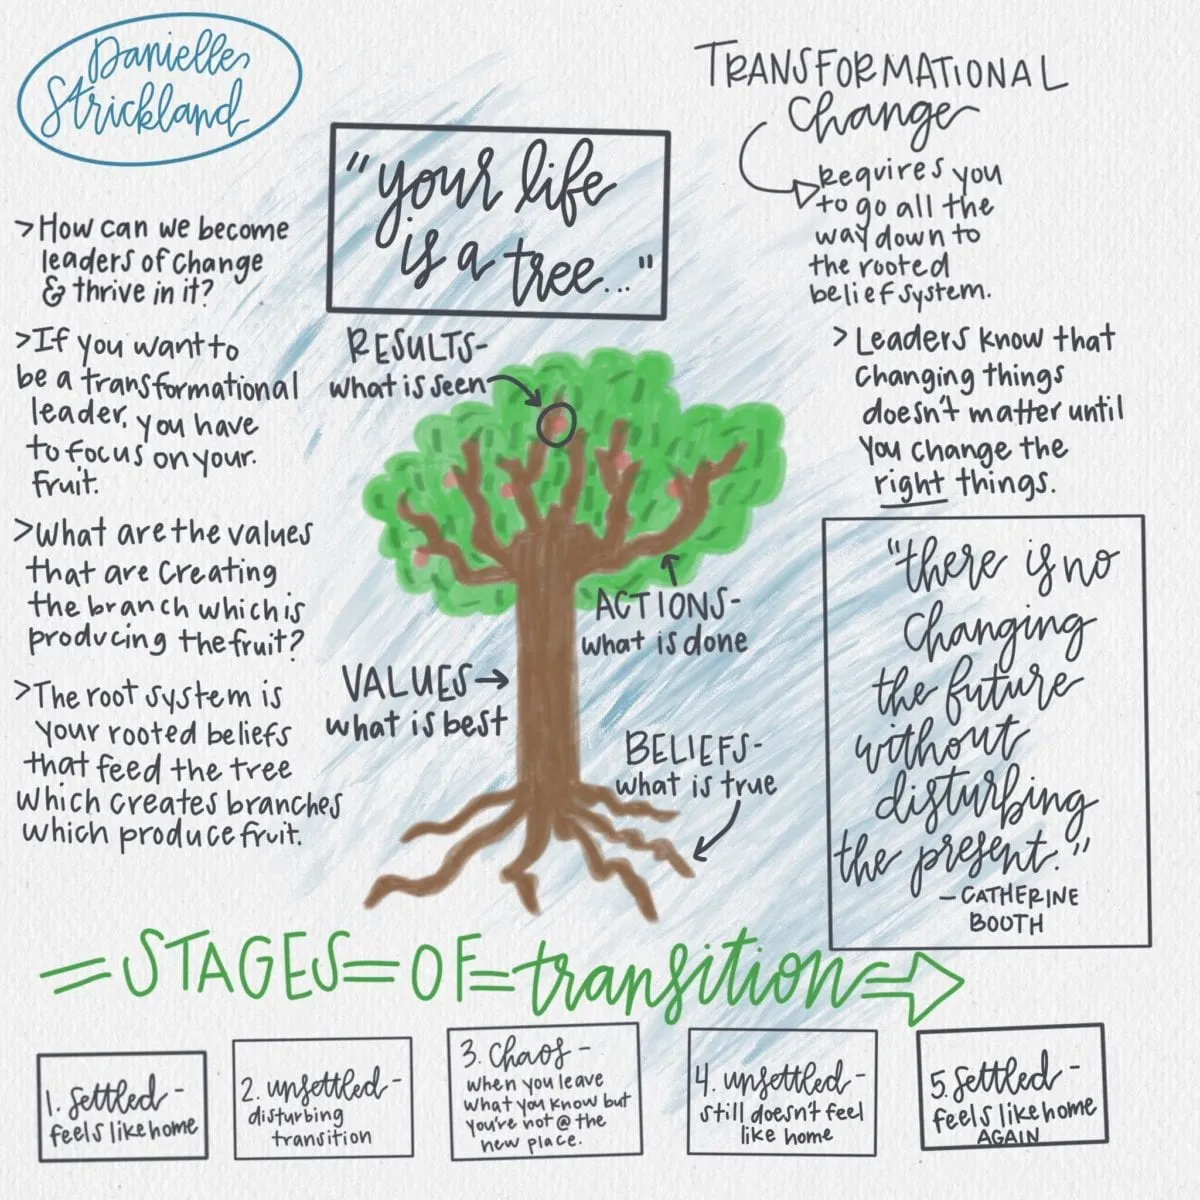 Danielle
Strickland
"your life
is a tree..."
TRANSFORMATIONAL
Change
Requires you
to go all the
way down to
the rooted
belief system.
>How can we become
leaders of change
& thrive in it?
>If you want to
be a transformational
leader, you have
to focus on your.
fruit.
>What are the values
that are creating
the branch which is
producing the fruit?
>The root system is
your rooted beliefs
that feed the tree
which creates branches
which produce fruit.
RESULTS-
what is seen
ACTIONS-
what is done
VALUES
what is best
BELIEFS-
what is true
>Leaders know that
changing things
doesn't matter until
you change the
right things.
"there is no
changing
the future
without
disturbing
the present."
-CATHERINE
BOOTH
=STAGES=OF=transition
1. Settled-
feels like home
2. unsettled-
disturbing
transition
3. Chaos-
when you leave
what you know but
you're not @ the
new place.
4. unsettled-
still doesn't feel
like home
5. Settled-
feels like home
AGAIN